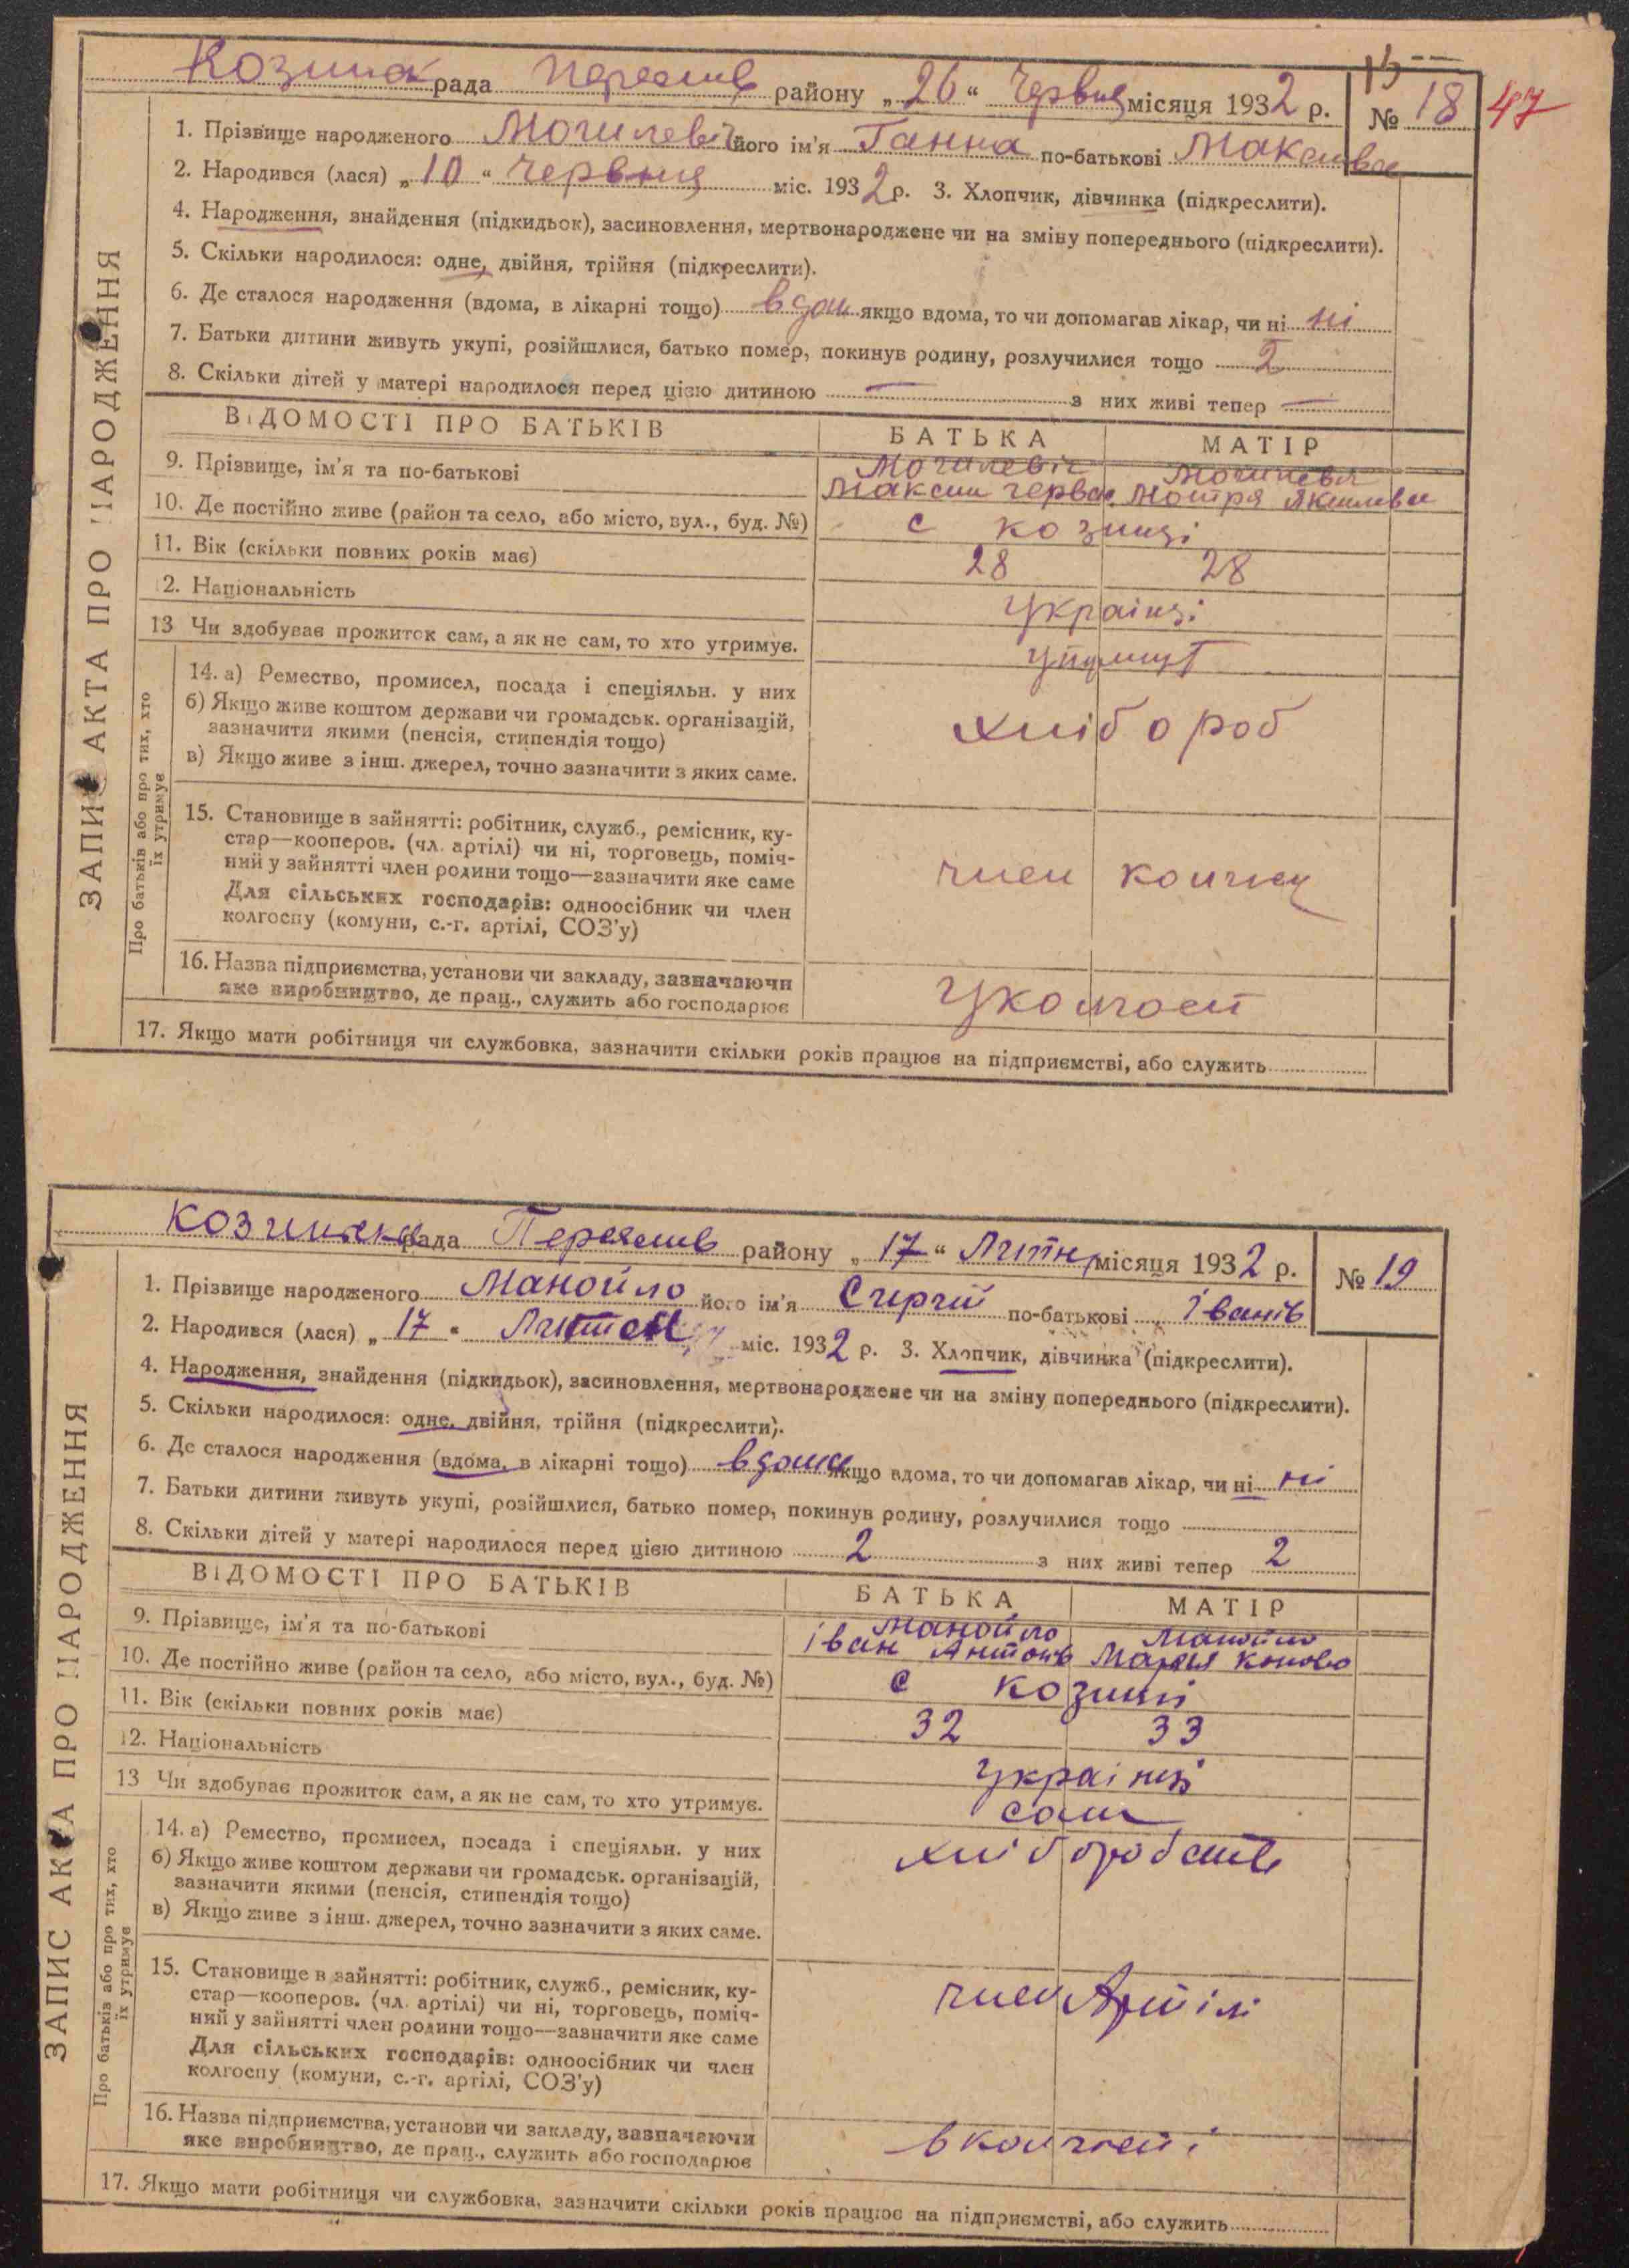 Козинск рада Переяслів району „26“ Червня місяця 1932 р. № 18 47
1. Прізвище народженого Могилевіч його ім'я Ганна по-батькові
2. Народився (лася) „10“ Червня міс. 1932 р. 3. Хлопчик, дівчинка (підкреслити).
4. Народження, знайдення (підкидьок), засиновлення, мертвонароджене чи на зміну попереднього (підкреслити).
5. Скільки народилося: одне, двійня, трійня (підкреслити).
6. Де сталося народження (вдома, в лікарні тощо) вдом якщо вдома, то чи допомагав лікар, чи ні ні
7. Батьки дитини живуть укупі, розійшлися, батько помер, покинув родину, розлучилися тощо 2
8. Скільки дітей у матері народилося перед цією дитиною — з них живі тепер —
ЗАПИС АКТА ПРО НАРОДЖЕННЯ
ВІДОМОСТІ ПРО БАТЬКІВ БАТЬКА МАТІР
9. Прізвище, ім'я та по-батькові Могилевіч Могилевіч
Максим Мотря
10. Де постійно живе (район та село, або місто, вул., буд. №) с Козинці
11. Вік (скільки повних років має) 28 28
12. Національність українці
13 Чи здобуває прожиток сам, а як не сам, то хто утримує.
Про батьків або про тих, хто їх утримує
14. а) Ремество, промисел, посада і спеціяльн. у них хлібороб
б) Якщо живе коштом держави чи громадськ. організацій,
зазначити якими (пенсія, стипендія тощо)
в) Якщо живе з інш. джерел, точно зазначити з яких саме.
15. Становище в зайнятті: робітник, служб., ремісник, ку-
стар—кооперов. (чл. артілі) чи ні, торговець, поміч-
ний у зайнятті член родини тощо—зазначити яке саме член
Для сільських господарів: одноосібник чи член
колгоспу (комуни, с.-г. артілі, СОЗ'у)
16. Назва підприємства, установи чи закладу, зазначаючи
яке виробництво, де прац., служить або господарює
17. Якщо мати робітниця чи службовка, зазначити скільки років працює на підприємстві, або служить
рада Переяслів району „17“ Липня місяця 1932 р. № 19
1. Прізвище народженого Манойло його ім'я Сергій по-батькові Іванів
2. Народився (лася) „17“ міс. 1932 р. 3. Хлопчик, дівчинка (підкреслити).
4. Народження, знайдення (підкидьок), засиновлення, мертвонароджене чи на зміну попереднього (підкреслити).
5. Скільки народилося: одне, двійня, трійня (підкреслити).
6. Де сталося народження (вдома, в лікарні тощо) вдома якщо вдома, то чи допомагав лікар, чи ні ні
7. Батьки дитини живуть укупі, розійшлися, батько помер, покинув родину, розлучилися тощо
8. Скільки дітей у матері народилося перед цією дитиною 2 з них живі тепер 2
ЗАПИС АКТА ПРО НАРОДЖЕННЯ
ВІДОМОСТІ ПРО БАТЬКІВ БАТЬКА МАТІР
9. Прізвище, ім'я та по-батькові Манойло Манойло
Іван Антонів Марія
10. Де постійно живе (район та село, або місто, вул., буд. №) с Козинці
11. Вік (скільки повних років має) 32 33
12. Національність українці
13 Чи здобуває прожиток сам, а як не сам, то хто утримує. сам
Про батьків або про тих, хто їх утримує
14. а) Ремество, промисел, посада і спеціяльн. у них
б) Якщо живе коштом держави чи громадськ. організацій,
зазначити якими (пенсія, стипендія тощо)
в) Якщо живе з інш. джерел, точно зазначити з яких саме.
15. Становище в зайнятті: робітник, служб., ремісник, ку-
стар—кооперов. (чл. артілі) чи ні, торговець, поміч-
ний у зайнятті член родини тощо—зазначити яке саме член Артілі
Для сільських господарів: одноосібник чи член
колгоспу (комуни, с.-г. артілі, СОЗ'у)
16. Назва підприємства, установи чи закладу, зазначаючи
яке виробництво, де прац., служить або господарює
17. Якщо мати робітниця чи службовка, зазначити скільки років працює на підприємстві, або служить